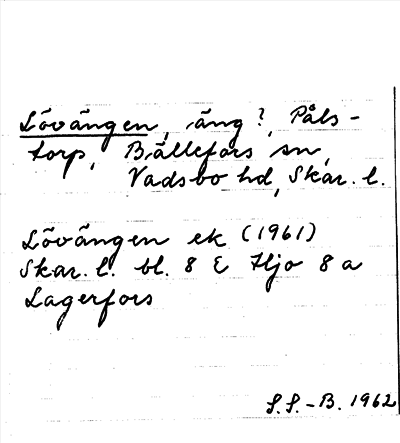 Lövängen, äng?, Påls-
torp, Bällefors sn,
Vadsbo hd, Skar. l.
Lövängen ek (1961)
Skar. l. bl. 8 E Hjo 8 a
Lagerfors
S.S.-B. 1962